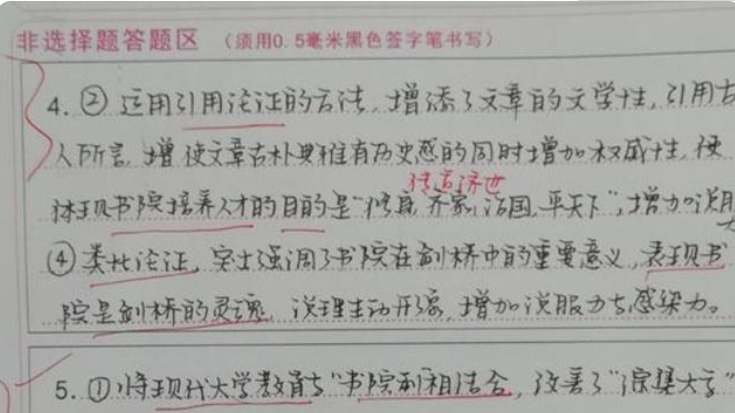 非选择题答题区 (须用0.5毫米黑色签字笔书写)
4. ② 运用引用论证的方法,增添了文章的文学性,引用古
人所言,增使文章古朴典雅有历史感的同时增加权威性,使
传道济世
体现书院培养人才的目的是"修身,齐家,治国,平天下",增加说服
④ 类比论证,突出强调了书院在剑桥中的重要意义,表现书
院是剑桥的灵魂,说理生动形象,增加说服力与感染力。
5. ①将现代大学教育与"书院制相结合,改善了"宗集大学"